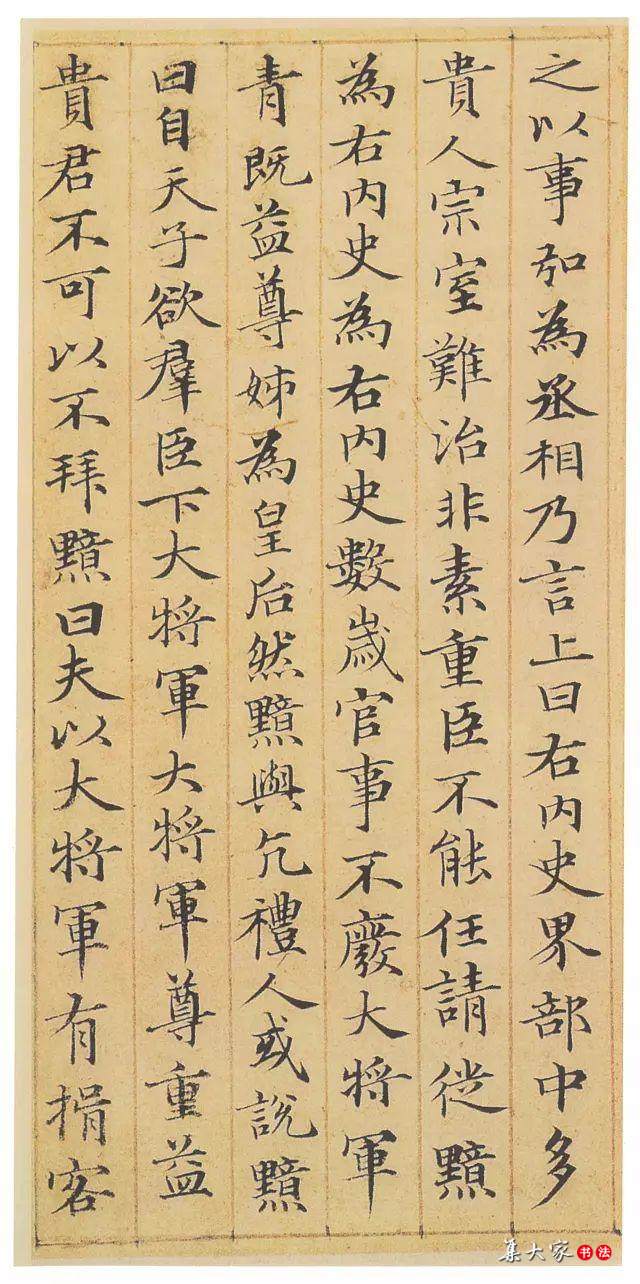 之以事弘為丞相乃言上曰右内史界部中多
貴人宗室難治非素重臣不能任請徙黯
為右内史為右内史數歲官事不廢大將軍
青既益尊姊為皇后然黯與亢禮人或說黯
曰自天子欲羣臣下大將軍大將軍尊重益
貴君不可以不拜黯曰夫以大將軍有揖客
集大家書法